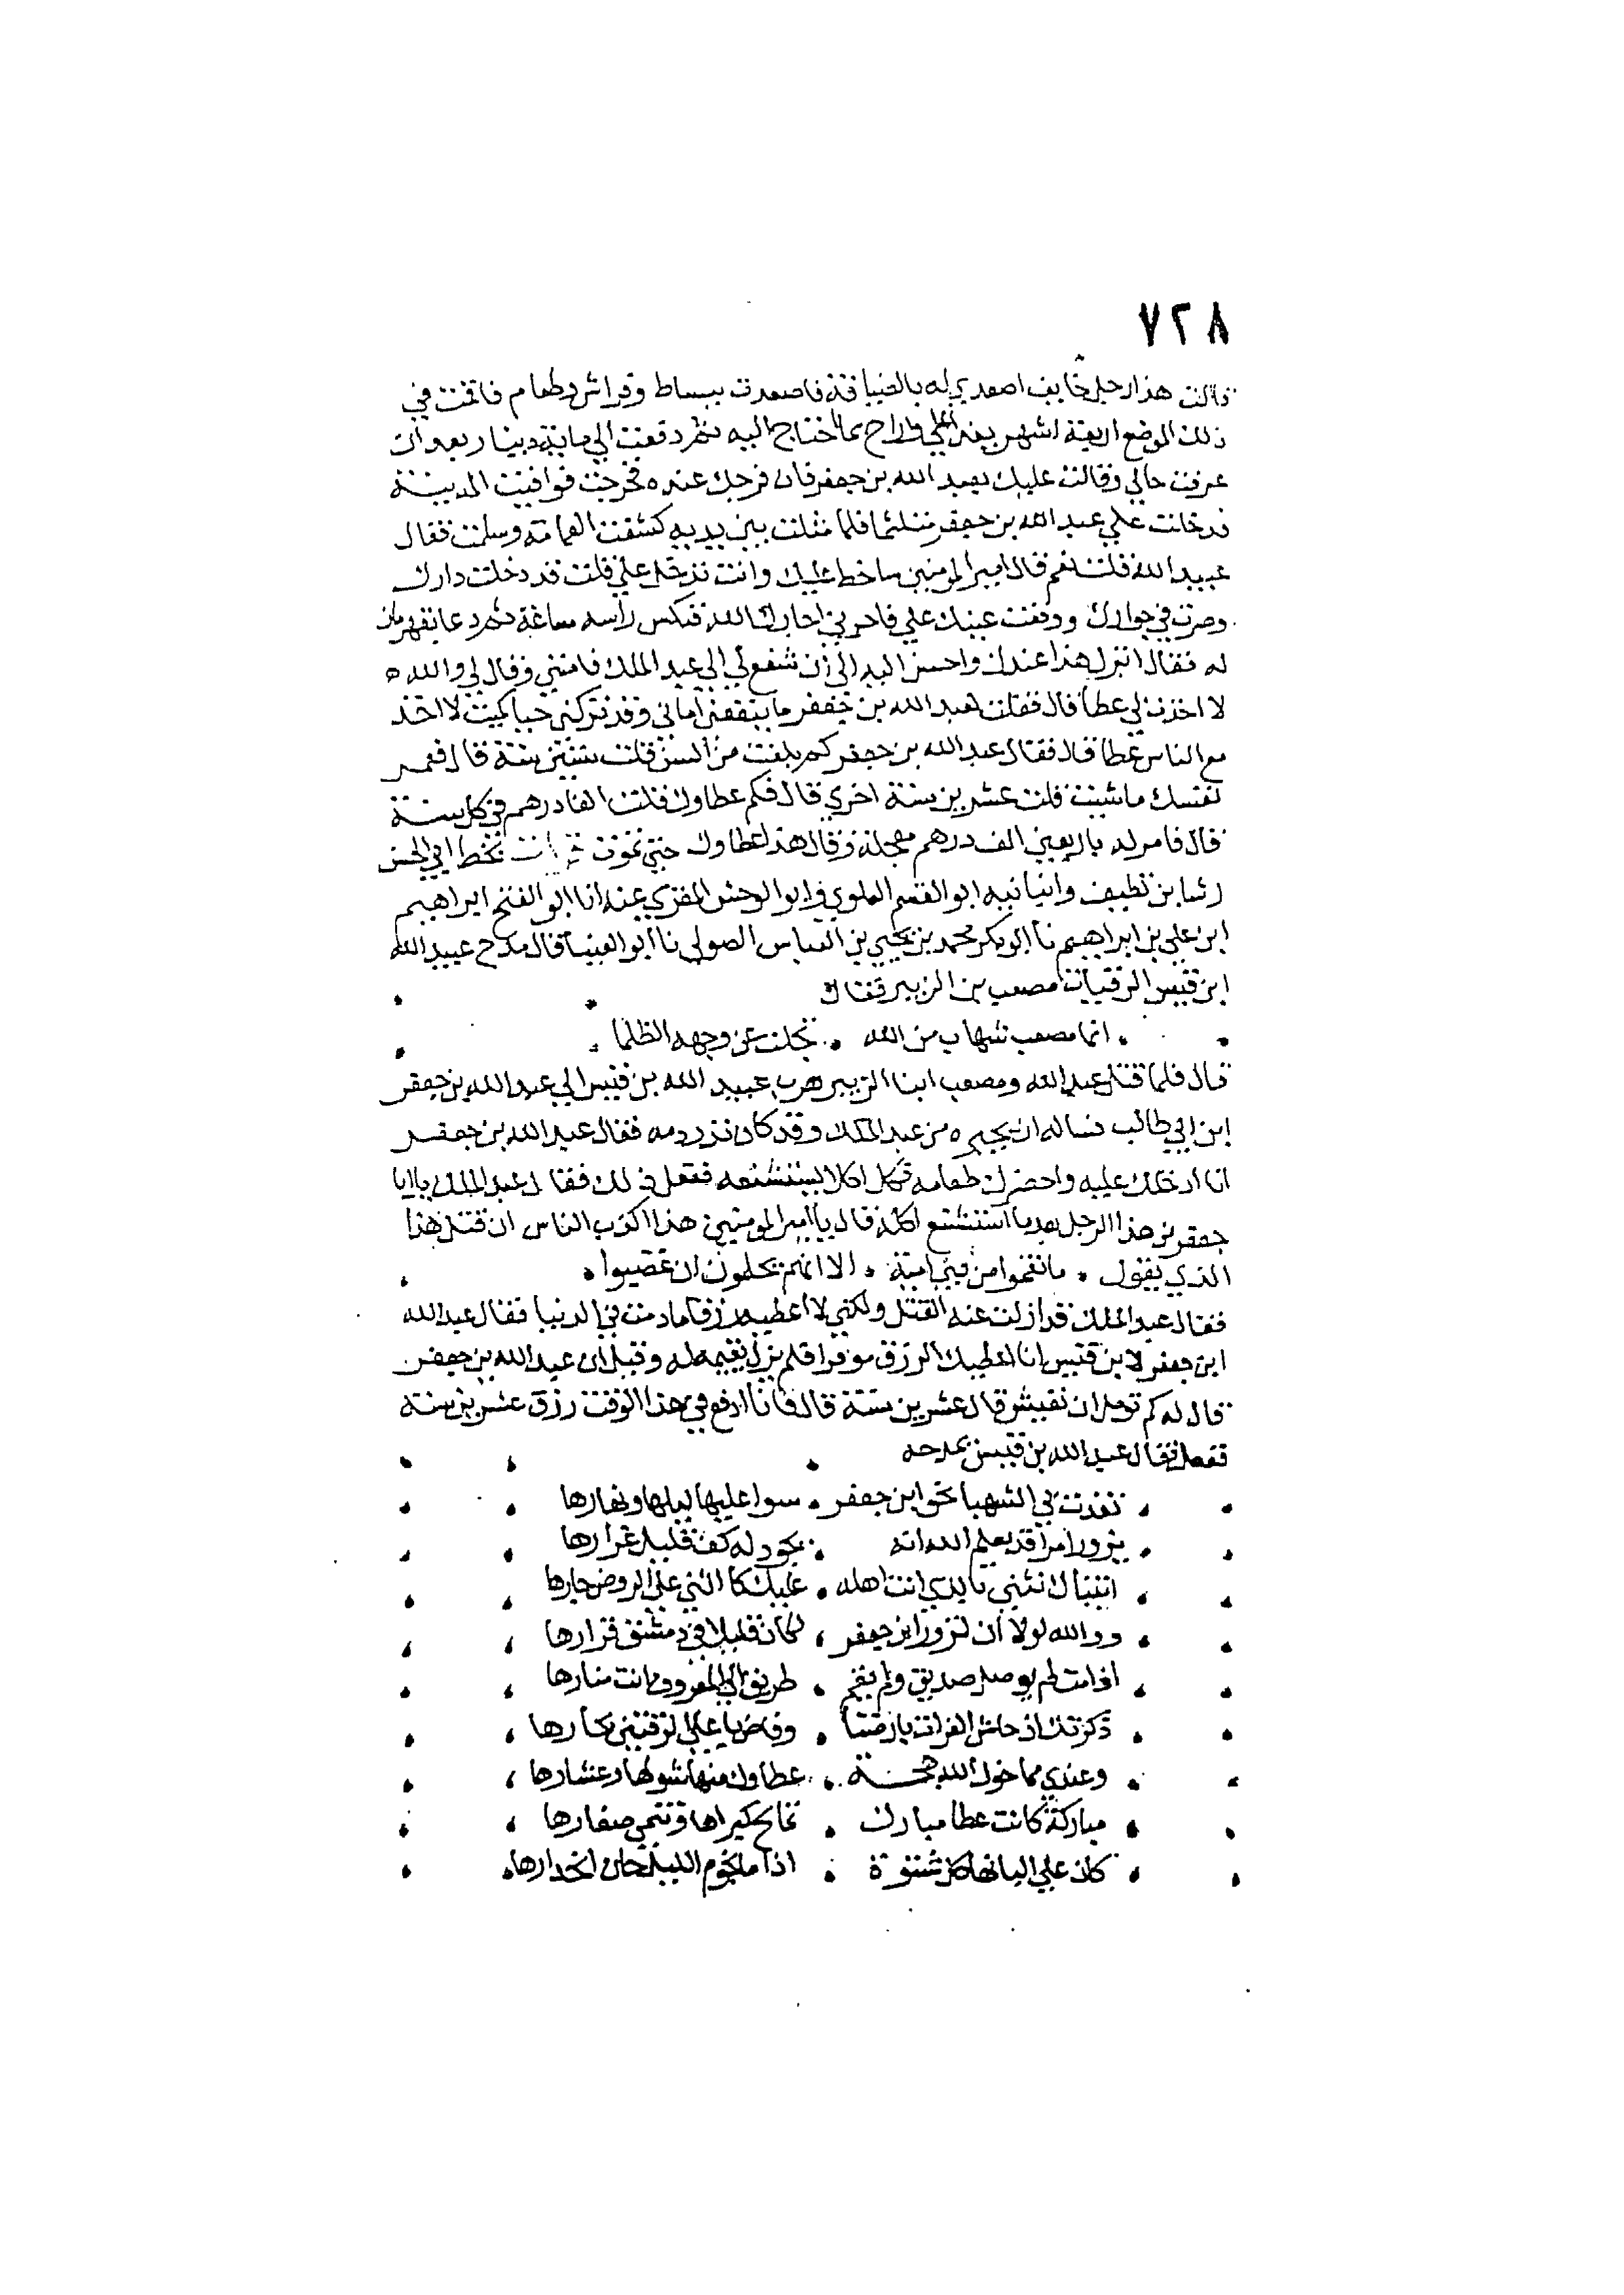 ٧٢٨
قالت هذا رجل خايف اصعدي له بالضيافة فاصعدت ببساط وفراش وطعام فاقمت في
ذلك الموضع اربعة اشهر يغدا علي ويراح بما احتاج اليه ثم دفعت الي ماية دينار بعد ان
عرفت حالي وقالت عليك بعبد الله بن جعفر فان فرجك عنده فخرجت فوافيت المدينة
فدخلت علي عبد الله بن جعفر متلثما فلما مثلت بين يديه كشفت العمامة وسلمت فقال
عبيد الله فقلت نعم قال امير المومنين ساخط عليك وانت تدخل علي قلت قد دخلت دارك
وصرت في جوارك ووقعت عينك علي فاجرني اجارك الله فنكس راسه ساعة ثم دعا بقهرمان
له فقال انزل هذا عندك واحسن اليه الى ان شفع لي الي عبد الملك فامنني وقال لي والله
لا اخذت لي عطا قال فقلت لعبد الله بن جعفر ما ينفعني اماني وقد تركني حيا كميت لا اخذ
مع الناس عطا قال فقال عبد الله بن جعفر كم بلغت من السن قلت ستين سنة قال فعمر
نفسك ما شيت قلت عشرين سنة اخري قال فكم عطاوك قلت الفا درهم في كل سنة
قال فامر له باربعين الف درهم معجلة وقال هذا عطاوك حتي تموت بخط ابي الحسن
رشا بن نظيف وانبانيه ابو القسم العلوي وابو الوحش المقري عنه انا ابو الفتح ابراهيم
ابن علي بن ابراهيم نا ابو بكر محمد بن يحيي بن العباس الصولي نا ابو العينا قال مدح عبيد الله
ابن قيس الرقيات مصعب بن الزبير فقال
انما مصعب شهاب من الله . تجلت عن وجهه الظلما
قال فلما قتل عبد الله ومصعب ابنا الزبير هرب عبيد الله بن قيس الي عبد الله بن جعفر
ابن ابي طالب فساله ان يجيره من عبد الملك وقد كان نذر دمه فقال عبد الله بن جعفر
انا ادخلك عليه واحضرك طعامه فكل اكلا يستشنعه ففعل ذلك فقال عبد الملك يا ابا
جعفر من هذا الرجل بعد ما استشنع اكله قال يا امير المومنين هذا اكذب الناس ان قتل هذا
الذي يقول . ما نقموا من بني امية . الا انهم يحلمون ان غضبوا .
فقال عبد الملك قد ازلت عنه القتل ولكني لا اعطيه رزقا ما دمت في الدنيا فقال عبد الله
ابن جعفر لابن قيس انا اعطيك الرزق موفرا فلم يزل يقيمه له وقيل ان عبد الله بن جعفر
قال له كم تومل ان تعيش قال عشرين سنة قال فانا ادفع في هذا الوقت رزق عشرين سنة
ففعل فقال عبيد الله بن قيس يمدحه
تغدت بي الشهبا نحو ابن جعفر . سوا عليها ليلها ونهارها
يزور امرا قد يعلم الله انه . يجود له كف قليل غرارها
اتيناك نثني بالذي انت اهله . عليك كما اثني على الروض جارها
ووالله لولا ان تزور ابن جعفر . لكان قليلا في دمشق قرارها
اذا مت لم يوصل صديق ولم يقم . طريق الي المعروف انت منارها
ذكرتك اذ حاش الفرات بارضنا . وفاض باعلي الرقتين بحارها
وعندي مما خول الله هجمة . عطاوك منها شولها وعشارها
مباركة كانت عطا مبارك . تمانح كبراها وتنمي صغارها